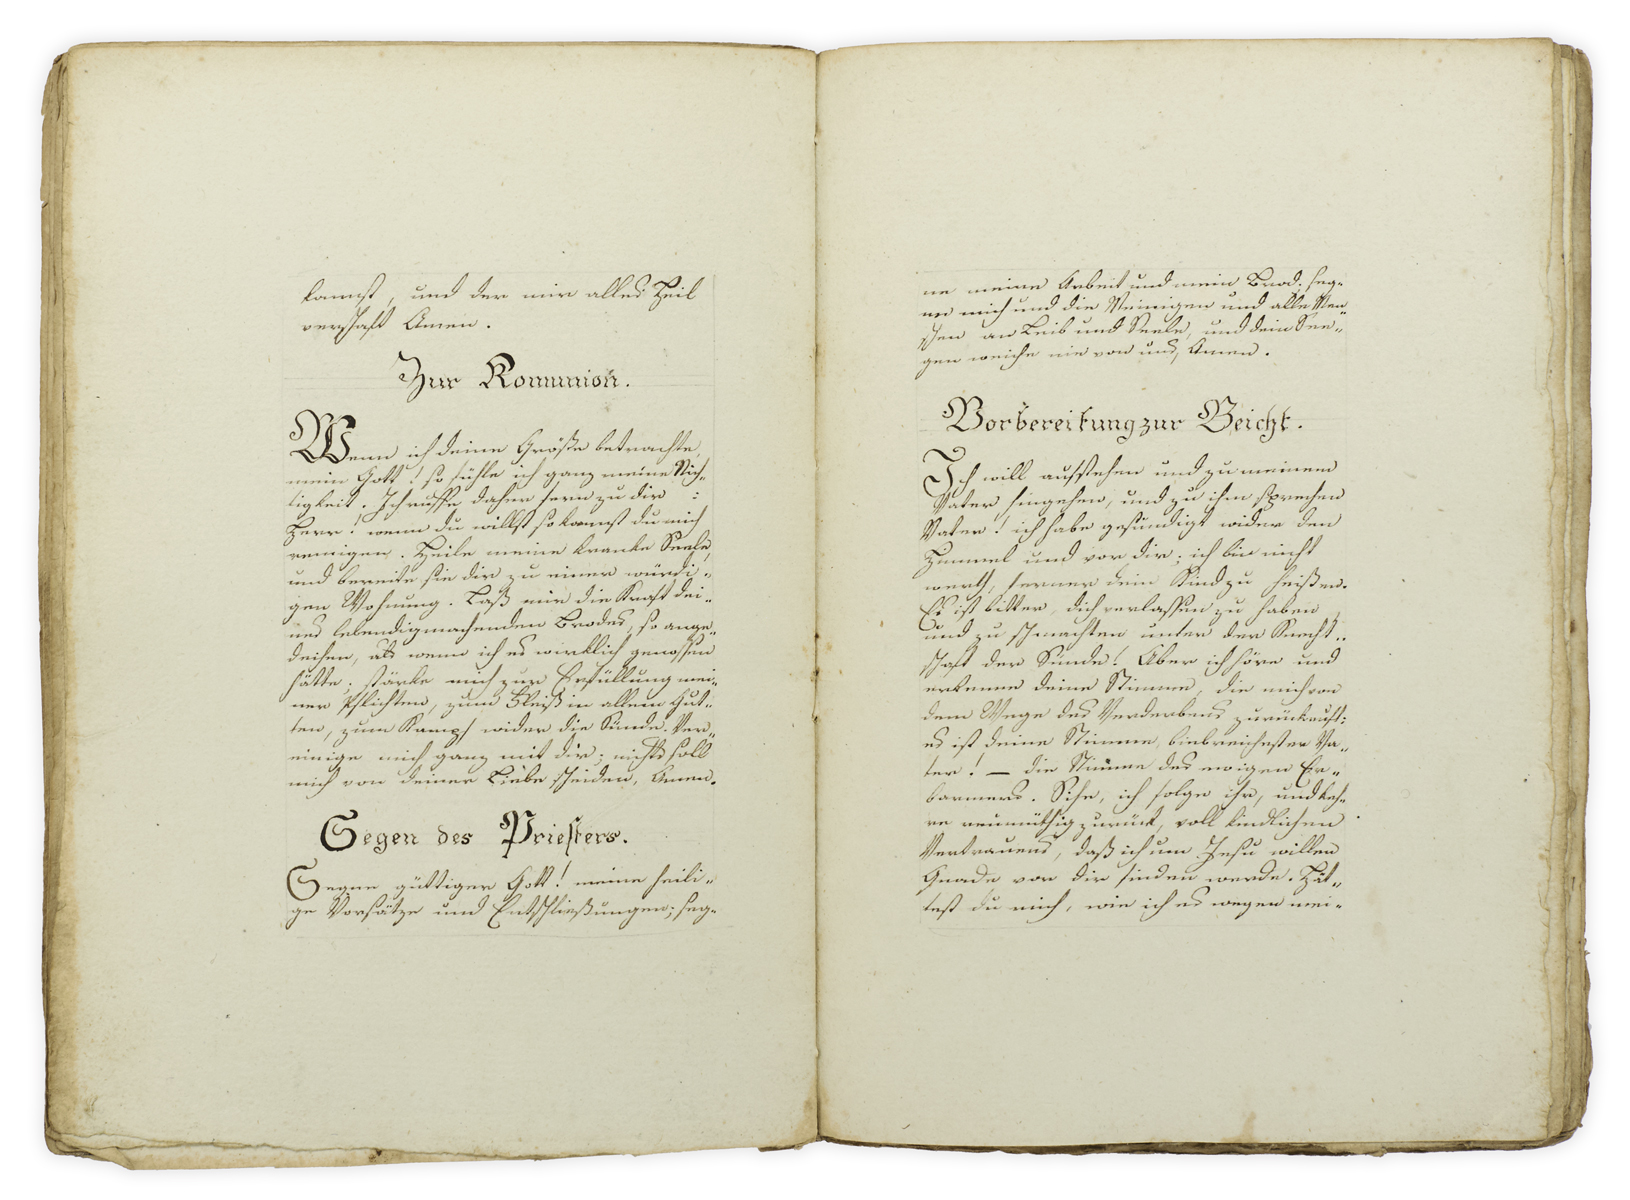 kannst, und der mir alles Heil
verschaft Amen.
Zur Komunion.
Wenn ich deine Größe betrachte,
mein Gott! so fühle ich ganz meine Nich„
tigkeit. Ich ruffe daher fern zu dir :
Herr! wenn du willst so kannst du mich
reinigen. Heile meine kranke Seele,
und bereite sie dir zu einer würdi„
gen Wohnung. Laß mir die Kraft dei„
nes lebendigmachenden Brodes, so ange„
deihen, als wenn ich es wirklich genossen
hätte; stärke mich zur Erfüllung mei„
ner Pflichten, zum Fleiß in allem Gut„
ten, zum Kampf wider die Sünde. Ver„
einige mich ganz mit dir; nichts soll
mich von deiner Liebe scheiden, Amen.
Segen des Priesters.
Segne güttiger Gott! meine heili„
ge Vorsätze und Entschließungen; seg„
ne meine Arbeit und mein Brod; seg„
ne mich und die Meinigen und alle Men„
schen an Leib und Seele, und dein See„
gen weiche nie von uns, Amen.
Vorbereitung zur Beicht.
Ich will aufstehen und zu meinem
Vater hingehen, und zu ihm sprechen
Vater! ich habe gesündigt wider den
Himmel und vor dir; ich bin nicht
werth, ferner dein Kind zu heißen.
Es ist bitter, dich verlassen zu haben,
und zu schmachten unter der Knecht„
schaft der Sünde! Aber ich höre und
erkenne deine Stimme, die mich von
dem Wege des Verderbens zurückruft:
es ist deine Stimme, liebreichester Va„
ter! — die Stimme des ewigen Er„
barmers. Sihe, ich folge ihr, und keh„
re reumüthig zurück, voll kindlichen
Vertrauens, daß ich um Jesu willen
Gnade vor dir finden werde. Hät„
test du mich, wie ich es wegen mei„